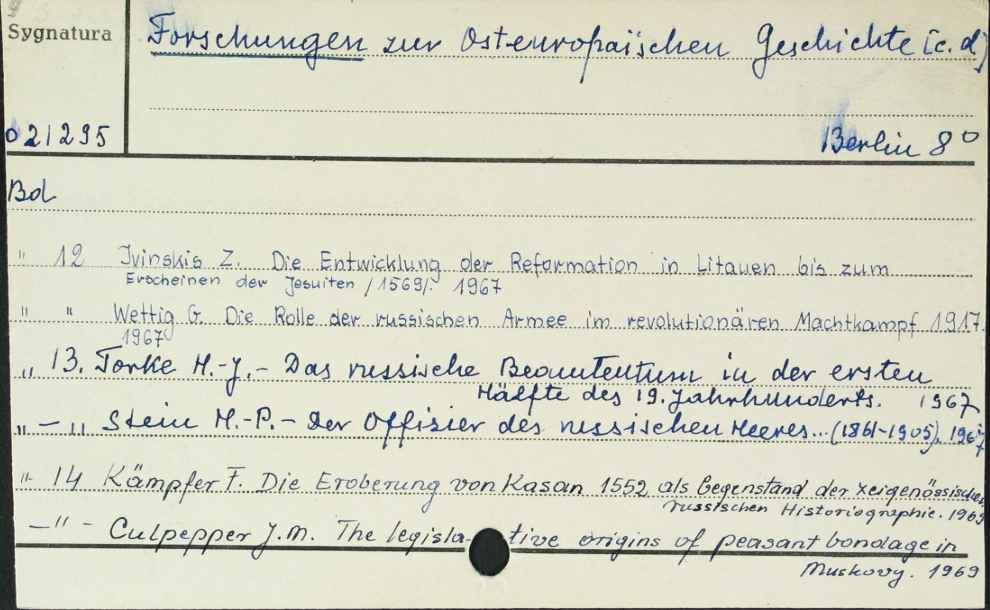 Sygnatura
Forschungen zur Osteuropäischen Geschichte [c.d]
021295
Berlin 8°
Bd
" 12 Ivinskis Z. Die Entwicklung der Reformation in Litauen bis zum
Erscheinen der Jesuiten /1569/. 1967
" " Wettig G. Die Rolle der russischen Armee im revolutionären Machtkampf 1917.
1967
" 13. Torke H.-J. - Das russische Beamtentum in der ersten
Hälfte des 19. Jahrhunderts. 1967
" - " Stein H.-P. - Der Offizier des russischen Heeres... (1861-1905). 1967
" 14 Kämpfer F. Die Eroberung von Kasan 1552 als Gegenstand der zeigenössischen
russischen Historiographie. 1969
- " - Culpepper J.M. The legisla-tive origins of peasant bondage in
Muskovy. 1969